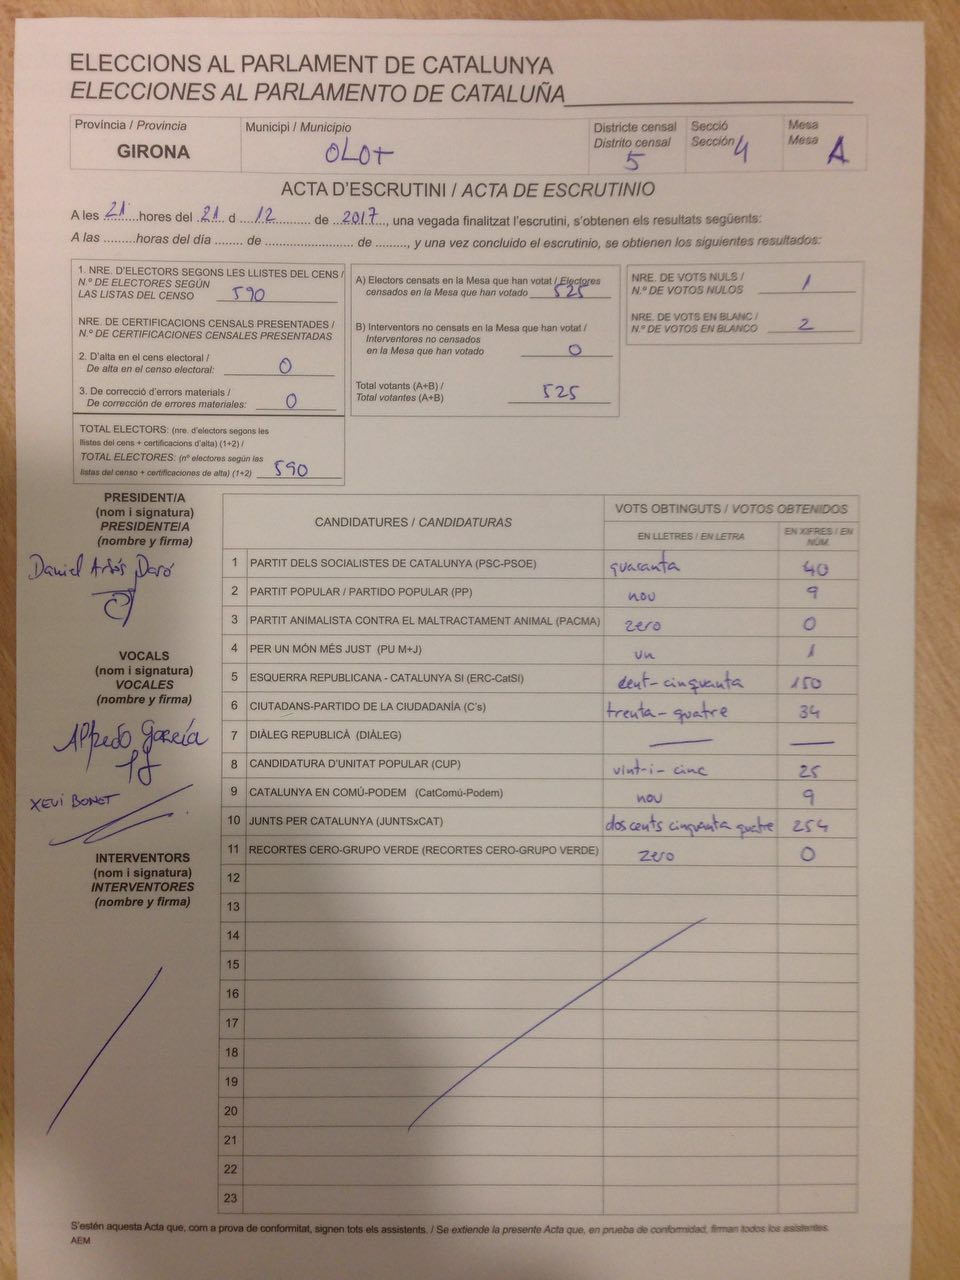 ELECCIONS AL PARLAMENT DE CATALUNYA
ELECCIONES AL PARLAMENTO DE CATALUÑA
Província / Provincia
GIRONA
Municipi / Municipio
OLOT
Districte censal
Distrito censal
5
Secció
Sección
4
Mesa
Mesa
A
ACTA D'ESCRUTINI / ACTA DE ESCRUTINIO
A les 21 hores del 21 d 12 de 2017, una vegada finalitzat l'escrutini, s'obtenen els resultats següents:
A las .........horas del día ........ de ......................... de ........., y una vez concluido el escrutinio, se obtienen los siguientes resultados:
1. NRE. D'ELECTORS SEGONS LES LLISTES DEL CENS /
N.º DE ELECTORES SEGÚN
LAS LISTAS DEL CENSO 590
NRE. DE CERTIFICACIONS CENSALS PRESENTADES /
N.º DE CERTIFICACIONES CENSALES PRESENTADAS
2. D'alta en el cens electoral /
De alta en el censo electoral: 0
3. De correcció d'errors materials /
De corrección de errores materiales: 0
TOTAL ELECTORS: (nre. d'electors segons les
llistes del cens + certificacions d'alta) (1+2) /
TOTAL ELECTORES: (nº electores según las
listas del censo + certificaciones de alta) (1+2) 590
A) Electors censats en la Mesa que han votat / Electores
censados en la Mesa que han votado 525
B) Interventors no censats en la Mesa que han votat /
Interventores no censados
en la Mesa que han votado 0
Total votants (A+B) /
Total votantes (A+B) 525
NRE. DE VOTS NULS /
N.º DE VOTOS NULOS 1
NRE. DE VOTS EN BLANC /
N.º DE VOTOS EN BLANCO 2
PRESIDENT/A
(nom i signatura)
PRESIDENTE/A
(nombre y firma)
Daniel
VOCALS
(nom i signatura)
VOCALES
(nombre y firma)
Alfredo García
XEVI BONET
INTERVENTORS
(nom i signatura)
INTERVENTORES
(nombre y firma)
CANDIDATURES / CANDIDATURAS
VOTS OBTINGUTS / VOTOS OBTENIDOS
EN LLETRES / EN LETRA
EN XIFRES / EN NÚM.
1 PARTIT DELS SOCIALISTES DE CATALUNYA (PSC-PSOE) quaranta 40
2 PARTIT POPULAR / PARTIDO POPULAR (PP) nou 9
3 PARTIT ANIMALISTA CONTRA EL MALTRACTAMENT ANIMAL (PACMA) zero 0
4 PER UN MÓN MÉS JUST (PU M+J) un 1
5 ESQUERRA REPUBLICANA - CATALUNYA SI (ERC-CatSI) cent-cinquanta 150
6 CIUTADANS-PARTIDO DE LA CIUDADANÍA (C's) trenta-quatre 34
7 DIÀLEG REPUBLICÀ (DIÀLEG)
8 CANDIDATURA D'UNITAT POPULAR (CUP) vint-i-cinc 25
9 CATALUNYA EN COMÚ-PODEM (CatComú-Podem) nou 9
10 JUNTS PER CATALUNYA (JUNTSxCAT) doscents cinquanta quatre 254
11 RECORTES CERO-GRUPO VERDE (RECORTES CERO-GRUPO VERDE) zero 0
12
13
14
15
16
17
18
19
20
21
22
23
S'estén aquesta Acta que, com a prova de conformitat, signen tots els assistents. / Se extiende la presente Acta que, en prueba de conformidad, firman todos los asistentes.
AEM